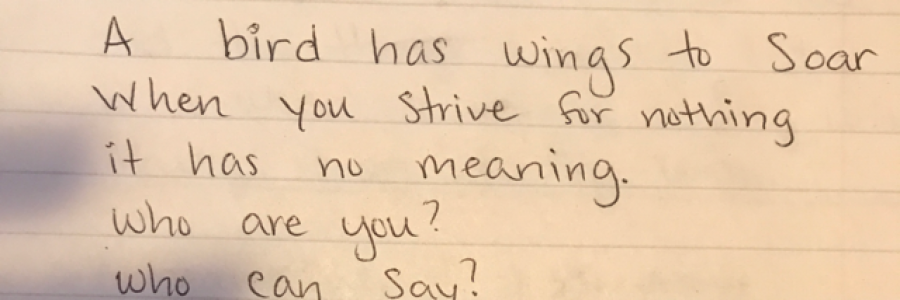 A bird has wings to Soar
When you strive for nothing
it has no meaning.
Who are you?
who can say?